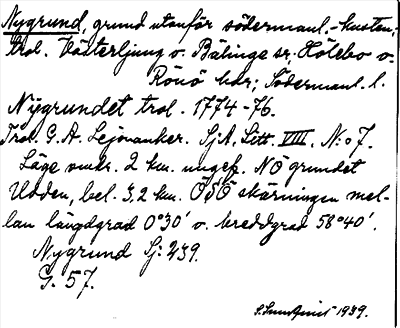 Nygrund, grund utanför södermanl.-kusten;
trol. Västerljung o. Bälinge sr; Hölebo o.
Rönö hdr; Södermanl. l.
Nygrundet trol. 1774-76.
Trol. G. A. Lejonanker. SjA, Litt. VIII. N:o 7.
Läge omkr. 2 km. ungef. NÖ grundet
Udden, bel. 3,2 km. ÖSÖ skärningen mel-
lan längdgrad 0°30' o. breddgrad 58°40'.
Nygrund Sj: 239.
G. 57.
S. Sundquist 1939.